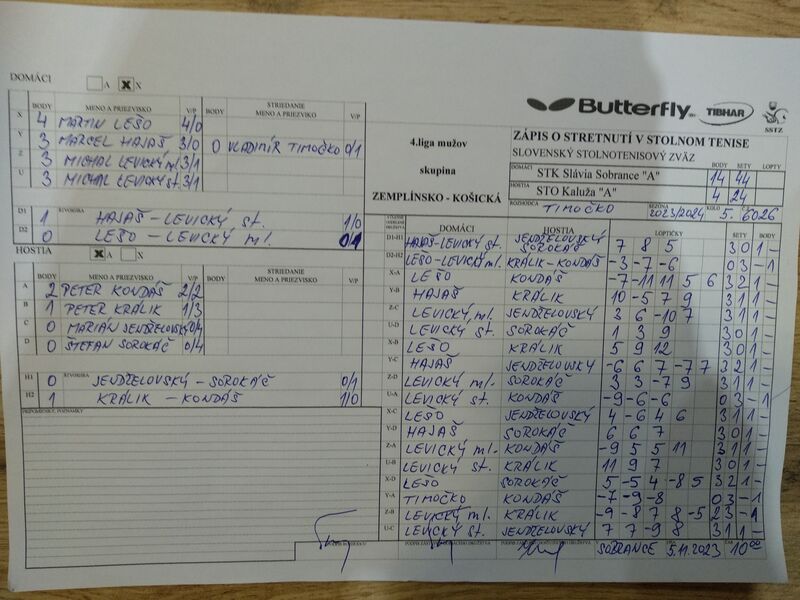 DOMÁCI A X X
BODY MENO A PRIEZVISKO V/P BODY STRIEDANIE MENO A PRIEZVISKO V/P
X 4 MARTIN LEŠO 4/0
Y 3 MARCEL HAJAŠ 3/0 0 VLADIMÍR TIMOČKO 0/1
Z 3 MICHAL LEVICKÝ ml. 3/1
U 3 MICHAL LEVICKÝ st. 3/1
D1 1 ŠTVORHRA HAJAŠ-LEVICKÝ st. 1/0
D2 0 LEŠO - LEVICKÝ ml. 0/1
HOSTIA X A X
BODY MENO A PRIEZVISKO V/P BODY STRIEDANIE MENO A PRIEZVISKO V/P
A 2 PETER KONDÁŠ 2/2
B 1 PETER KRÁLIK 1/3
C 0 MARIÁN JENDŽELOVSKÝ 0/4
D 0 ŠTEFAN SOROKÁČ 0/4
H1 0 ŠTVORHRA JENDŽELOVSKÝ - SOROKÁČ 0/1
H2 1 KRÁLIK - KONDÁŠ 1/0
PRIPOMIENKY, POZNÁMKY
Butterfly TIBHAR SSTZ
4.liga mužov
skupina
ZEMPLÍNSKO - KOŠICKÁ
ZÁPIS O STRETNUTÍ V STOLNOM TENISE
SLOVENSKÝ STOLNOTENISOVÝ ZVÄZ
BODY SETY LOPTY
DOMÁCI STK Slávia Sobrance "A" 14 44
HOSTIA STO Kaluža "A" 4 24
ROZHODCA TIMOČKO SEZÓNA 2023/2024 KOLO 5. 6026
DOMÁCI HOSTIA LOPTIČKY SETY BODY
D1-H1 HAJAŠ-LEVICKÝ st. JENDŽELOVSKÝ SOROKÁČ 7 8 5 3 0 1 -
D2-H2 LEŠO-LEVICKÝ ml. KRÁLIK-KONDÁŠ -3 -7 -6 0 3 - 1
X-A LEŠO KONDÁŠ -7 -11 11 5 6 3 2 1 -
Y-B HAJAŠ KRÁLIK 10 -5 7 9 3 1 1 -
Z-C LEVICKÝ ml. JENDŽELOVSKÝ 3 6 -10 7 3 1 1 -
U-D LEVICKÝ st. SOROKÁČ 1 3 9 3 0 1 -
X-B LEŠO KRÁLIK 5 9 12 3 0 1 -
Y-C HAJAŠ JENDŽELOVSKÝ -6 6 7 -7 7 3 2 1 -
Z-D LEVICKÝ ml. SOROKÁČ 3 3 -7 9 3 1 1 -
U-A LEVICKÝ st. KONDÁŠ -9 -6 -6 0 3 - 1
X-C LEŠO JENDŽELOVSKÝ 4 -6 4 6 3 1 1 -
Y-D HAJAŠ SOROKÁČ 6 6 7 3 0 1 -
Z-A LEVICKÝ ml. KONDÁŠ -9 5 5 11 3 1 1 -
U-B LEVICKÝ st. KRÁLIK 11 9 7 3 0 1 -
X-D LEŠO SOROKÁČ 5 -5 4 -8 5 3 2 1 -
Y-A TIMOČKO KONDÁŠ -7 -9 -8 0 3 - 1
Z-B LEVICKÝ ml. KRÁLIK -9 -8 7 8 -5 2 3 - 1
U-C LEVICKÝ st. JENDŽELOVSKÝ 7 7 -9 8 3 1 1 -
SOBRANCE 5.11.2023 10 00